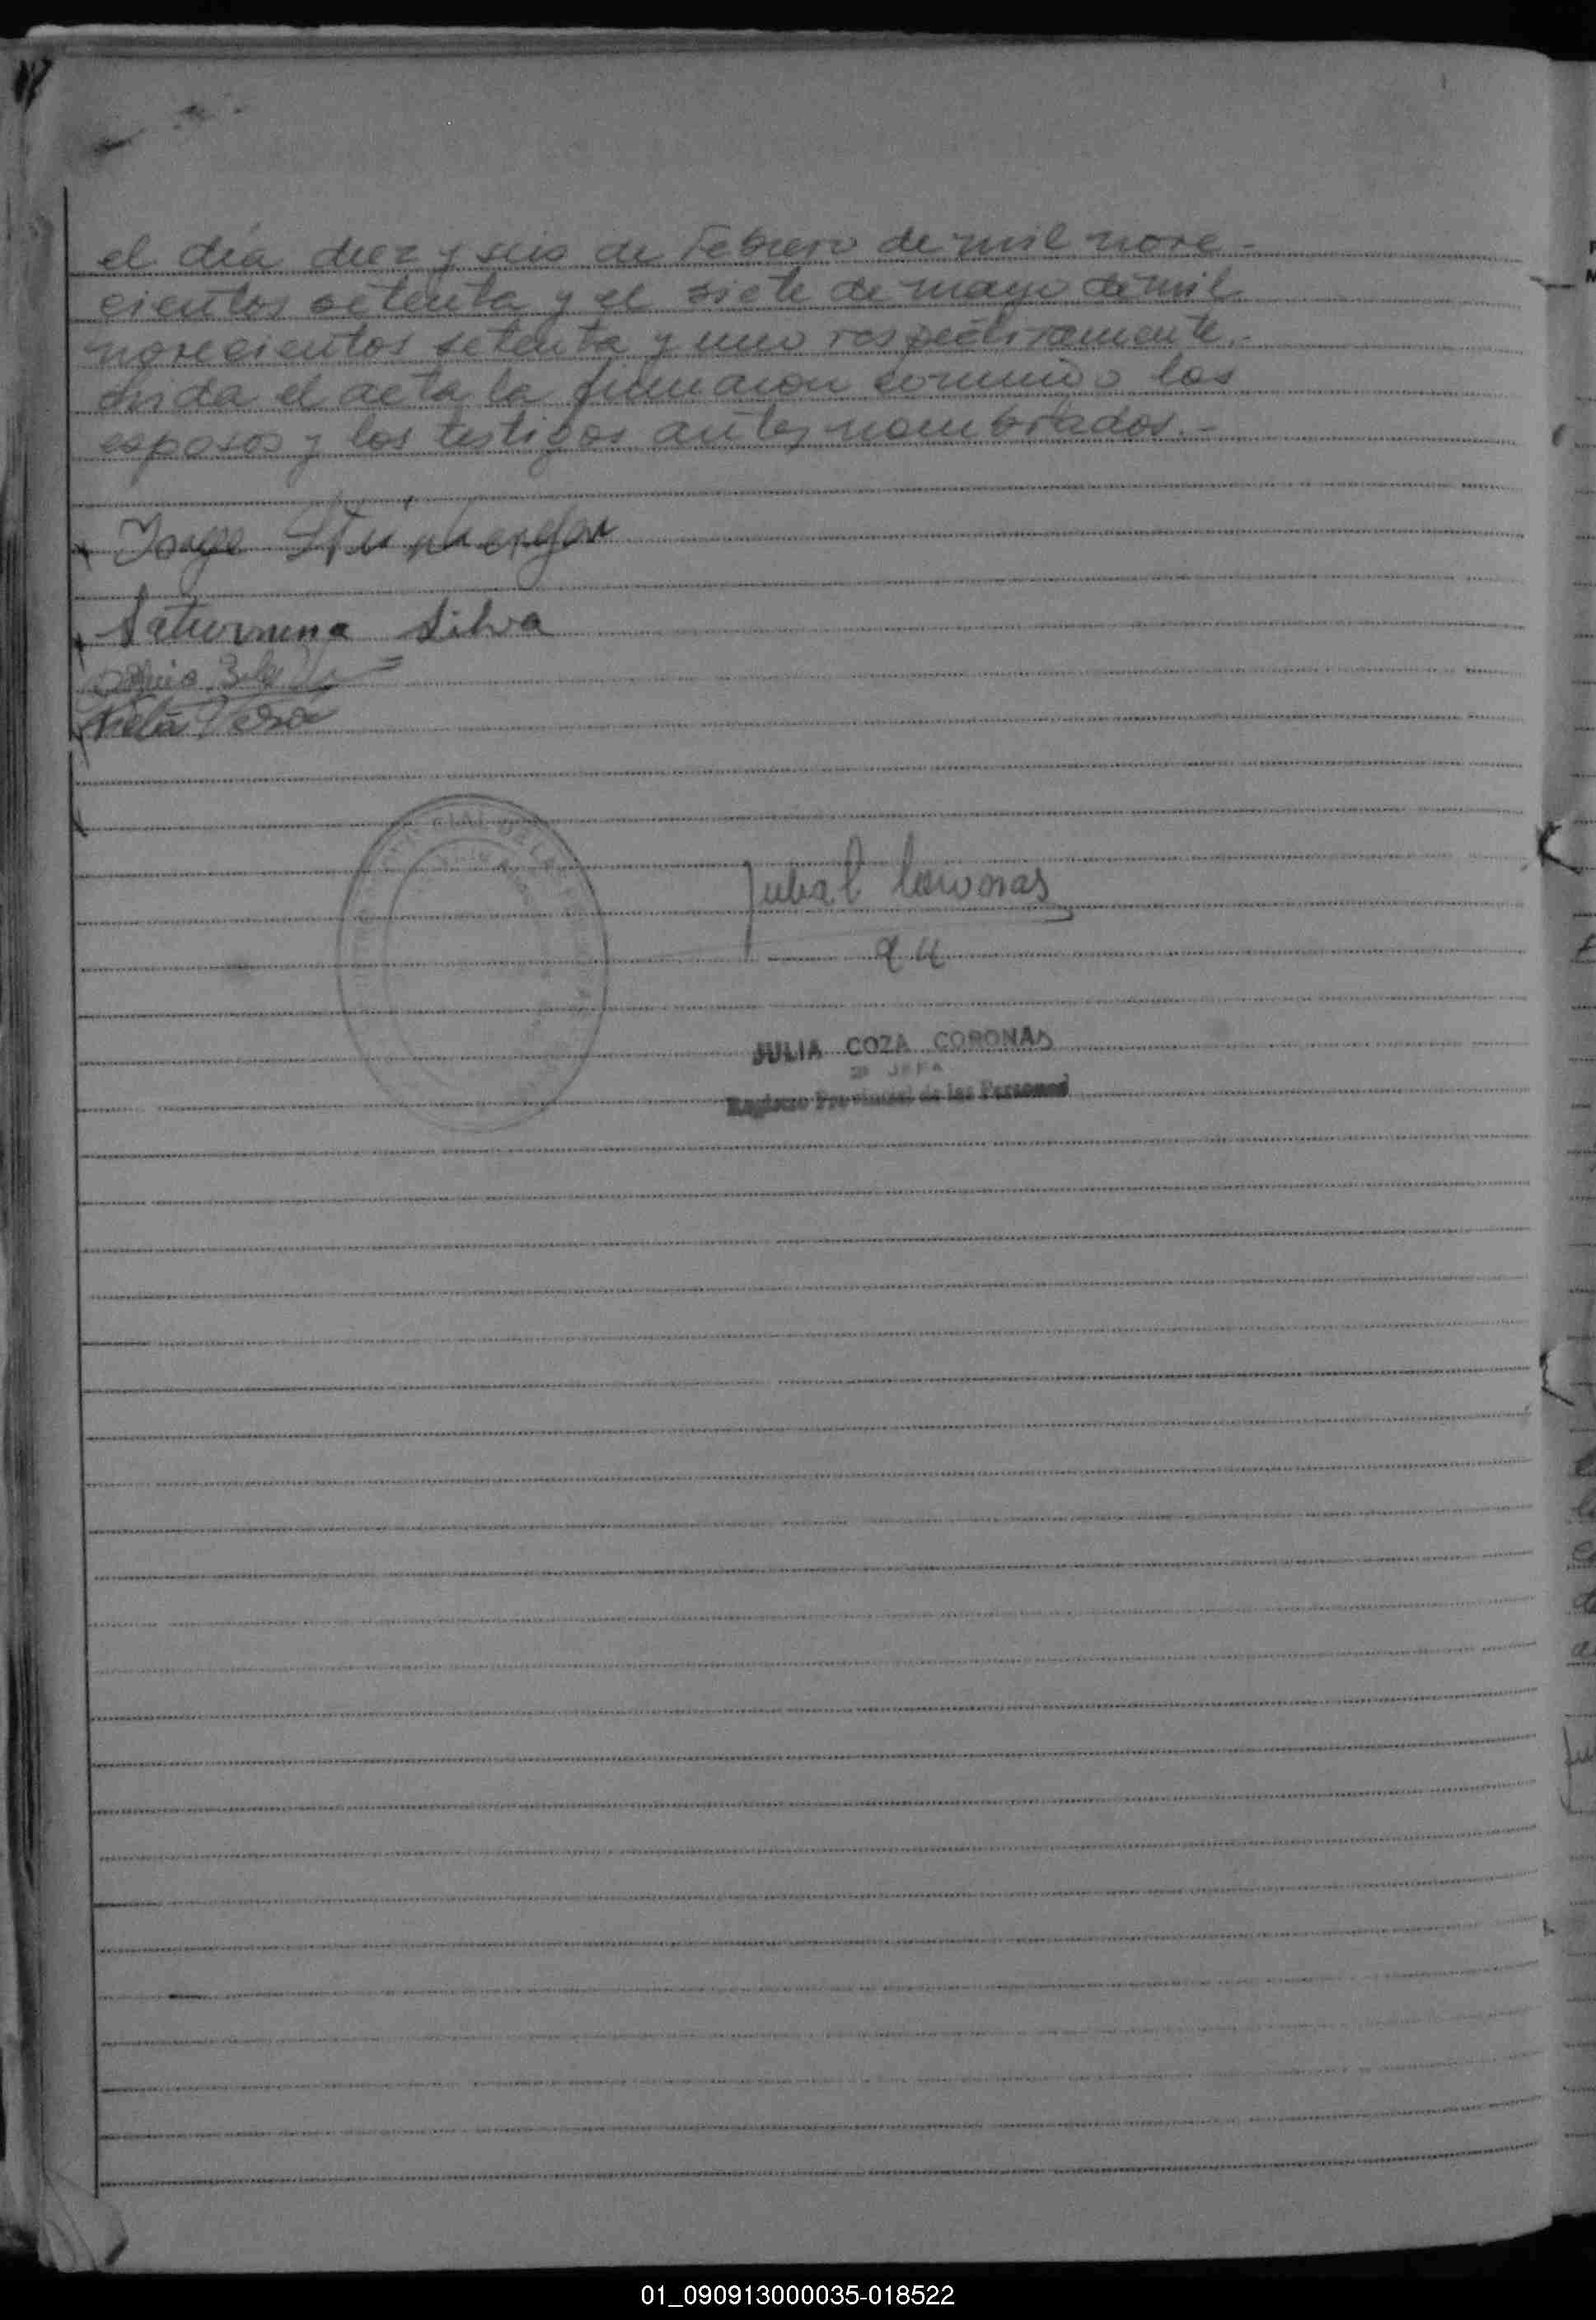 el día diez y seis de Febrero de mil nove-
cientos setenta y el siete de mayo de mil
novecientos setenta y uno respectivamente.-
Leida el acta la firmaron conmigo los
esposos y los testigos antes nombrados.-
Jorge
Saturnina Silva
Vera
Julia C Coronas
JULIA COZA CORONAS
JEFA
Registro Provincial de las Personas
01_090913000035-018522